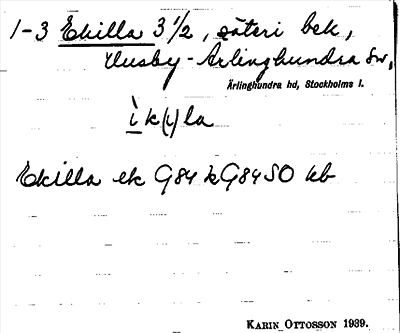 1-3 Ekilla 3 1/2, säteri bek,
Husby-Ärlinghundra sn,
Ärlinghundra hd, Stockholms l.
ìk(ι)la
Ekilla ek G84 k G84 SO kb
KARIN OTTOSSON 1939.